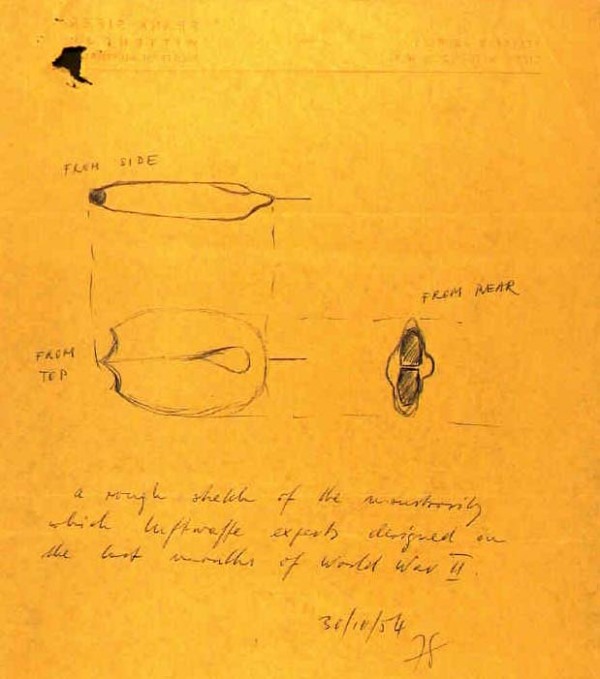 FROM SIDE
FROM REAR
FROM
TOP
a rough sketch of the monstrosity
which Luftwaffe experts designed in
the last months of World War II.
30/10/54